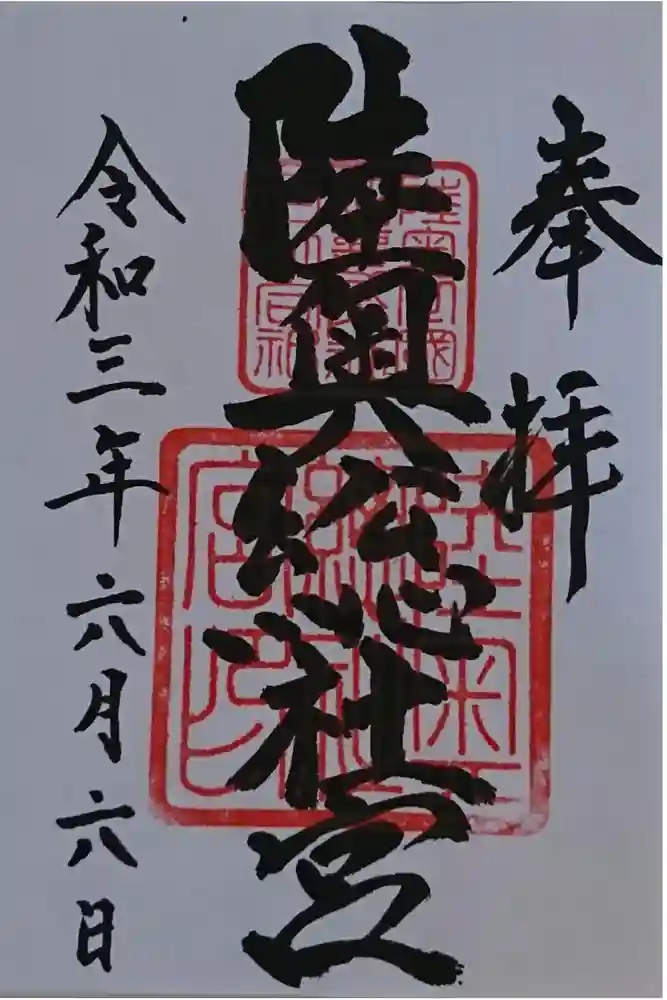 奉拝
陸奥総社宮
令和三年六月六日